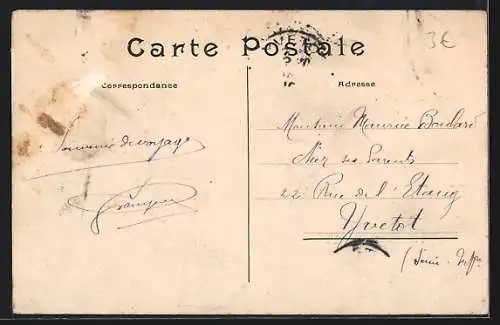 3€
Carte Postale
Correspondance
Adresse
Souvenir du voyage
Monsieur Maurice
Chez ses Parents
22 Rue de l'Etang
Yvetot
(Seine-Infre